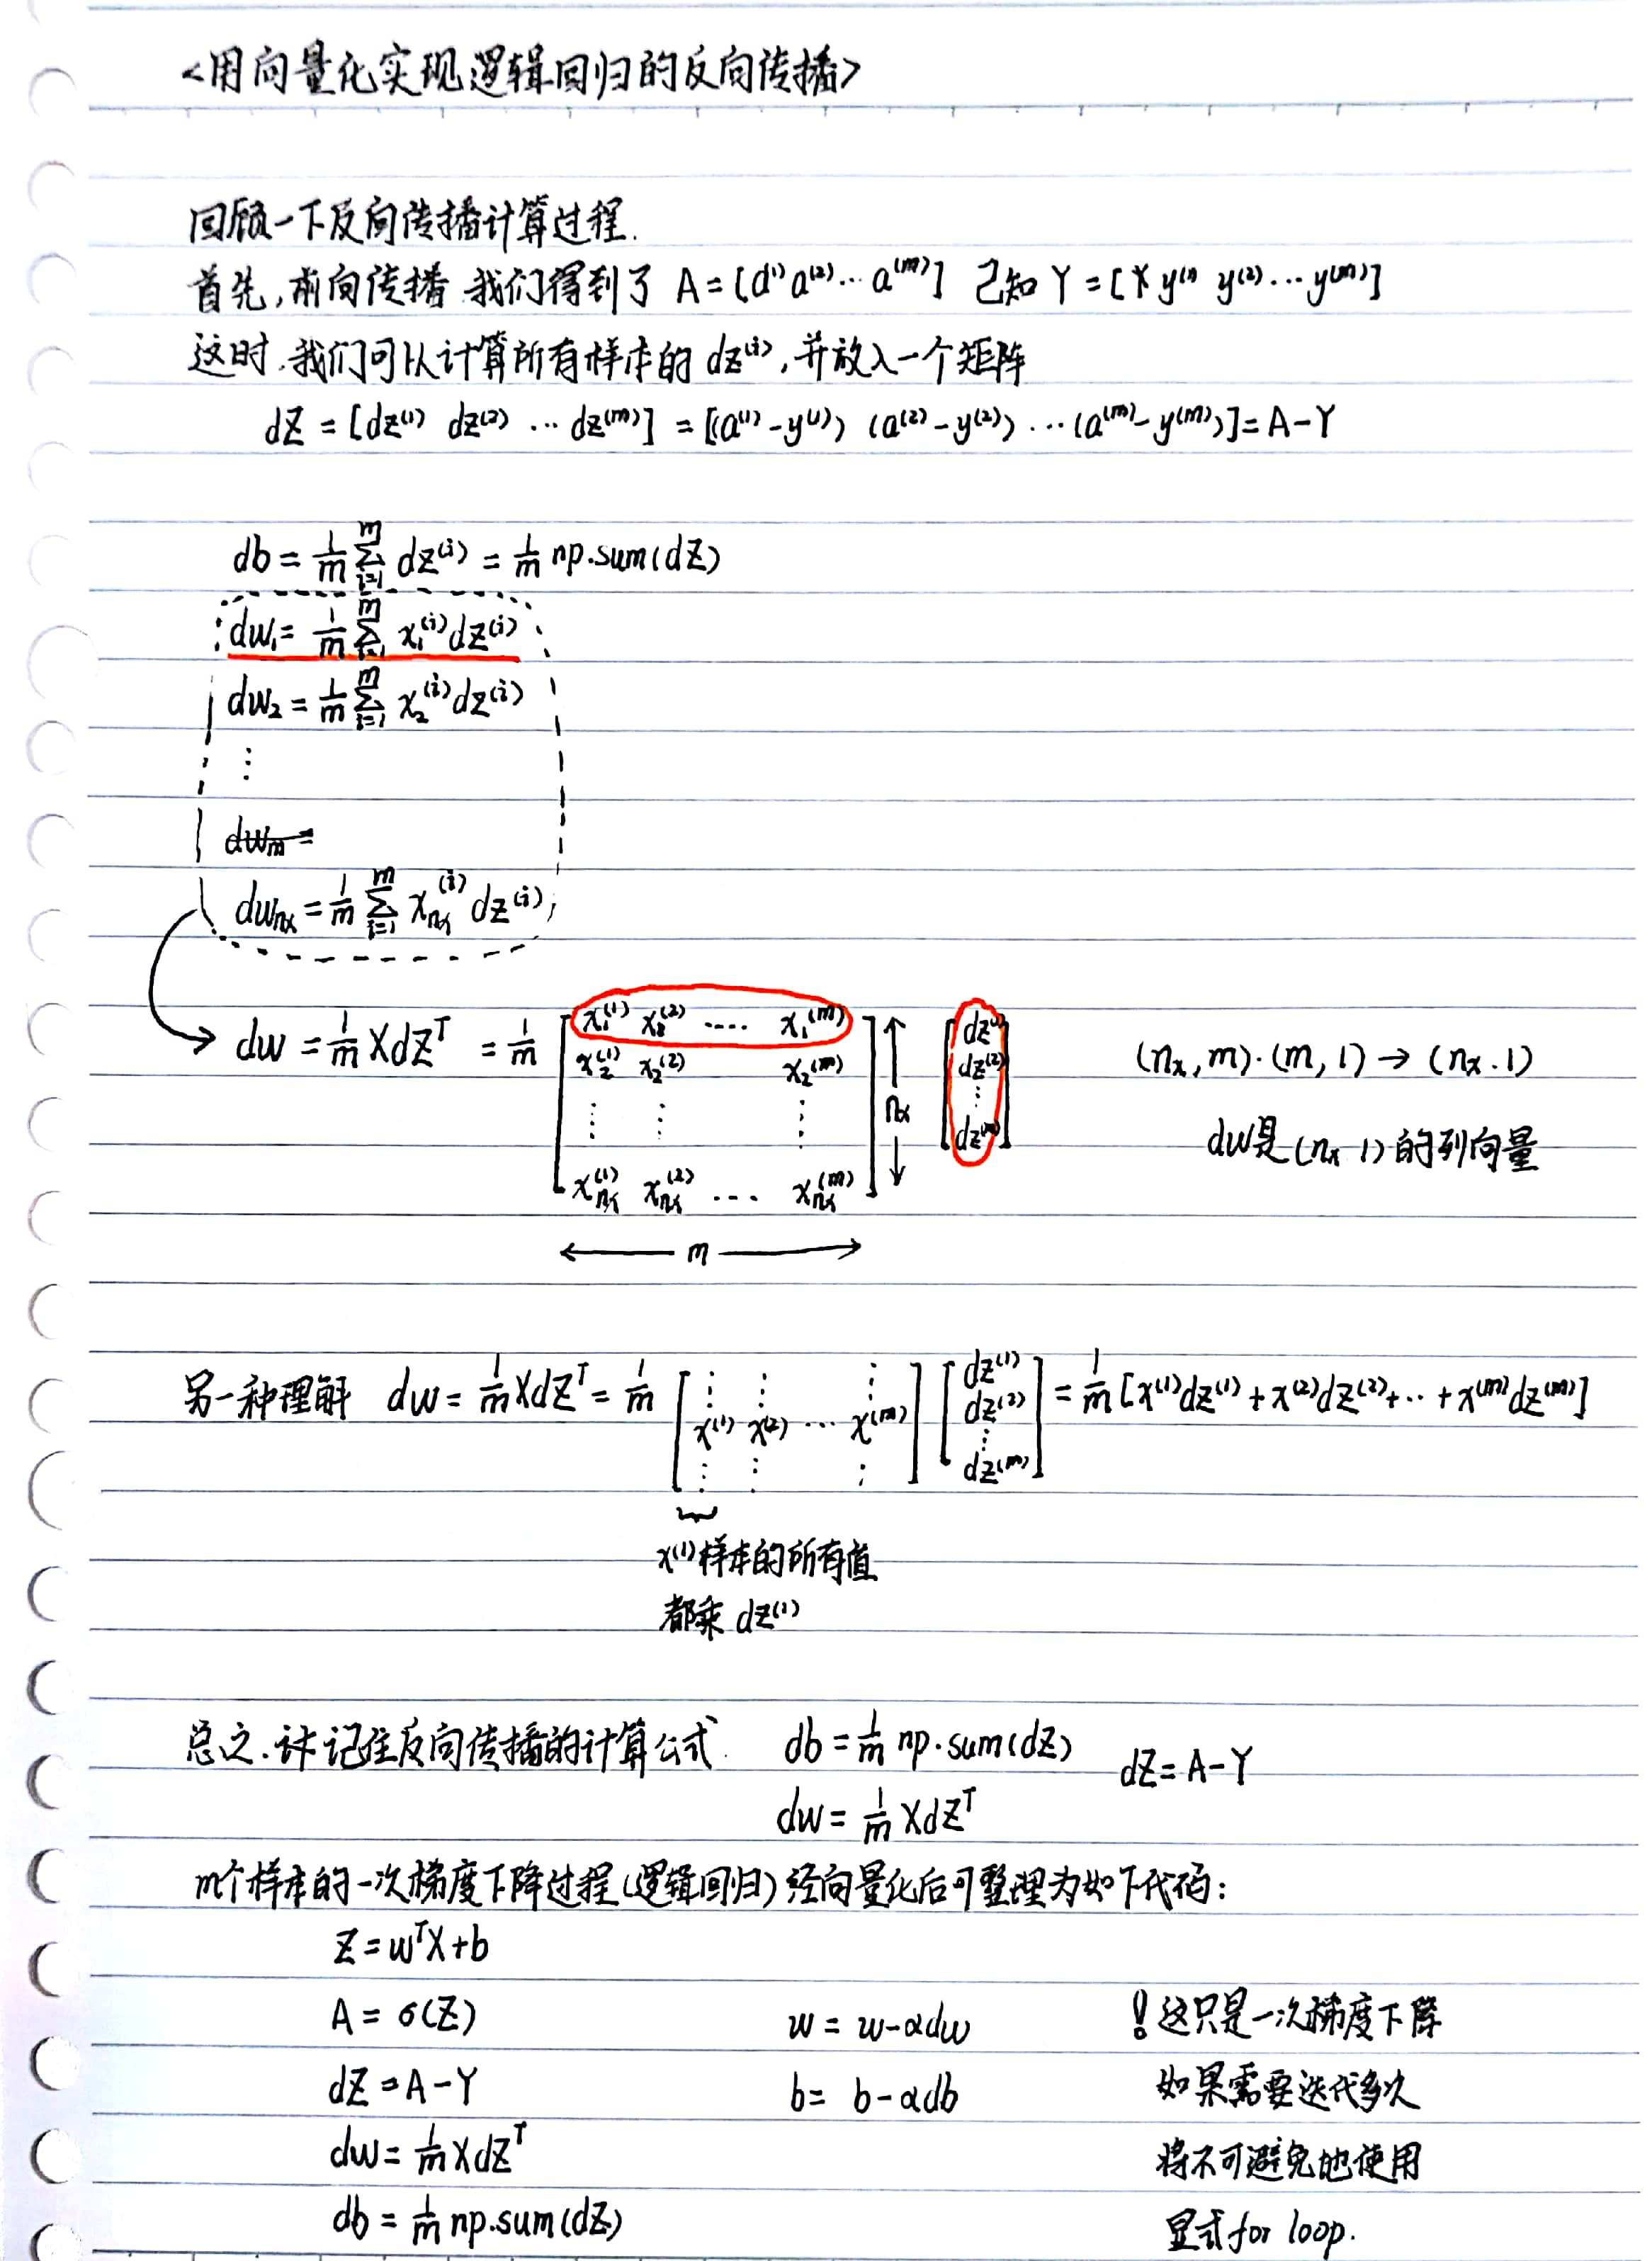 <用向量化实现逻辑回归的反向传播>
回顾一下反向传播计算过程.
首先,前向传播 我们得到了 A=[a⁽¹⁾ a⁽²⁾… a⁽ᵐ⁾] 已知 Y=[y⁽¹⁾ y⁽²⁾…y⁽ᵐ⁾]
这时,我们可以计算所有样本的 dz⁽ⁱ⁾,并放入一个矩阵
dZ = [dz⁽¹⁾ dz⁽²⁾ … dz⁽ᵐ⁾] = [(a⁽¹⁾-y⁽¹⁾) (a⁽²⁾-y⁽²⁾)…(a⁽ᵐ⁾-y⁽ᵐ⁾)]=A-Y
db = 1/m Σ_{i=1}^{m} dz⁽ⁱ⁾ = 1/m np.sum(dZ)
dw₁= 1/m Σ_{i=1}^{m} x₁⁽ⁱ⁾dz⁽ⁱ⁾
dw₂ = 1/m Σ_{i=1}^{m} x₂⁽ⁱ⁾dz⁽ⁱ⁾
⋮
dwₘ =
dw_{nx} = 1/m Σ_{i=1}^{m} x_{nx}⁽ⁱ⁾ dz⁽ⁱ⁾
dw = 1/m XdZᵀ = 1/m [ x₁⁽¹⁾ x₁⁽²⁾ …. x₁⁽ᵐ⁾ ] [ dz⁽¹⁾ ] (nₓ,m)·(m,1)→(nₓ.1)
x₂⁽¹⁾ x₂⁽²⁾ x₂⁽ᵐ⁾ nx dz⁽²⁾
⋮ ⋮ ⋮ ⋮ dz⁽ᵐ⁾ dw是(nₓ 1)的列向量
x_{nx}⁽¹⁾ x_{nx}⁽²⁾ … x_{nx}⁽ᵐ⁾
m
另一种理解 dw = 1/m XdZᵀ = 1/m [ x⁽¹⁾ x⁽²⁾ … x⁽ᵐ⁾ ] [ dz⁽¹⁾ dz⁽²⁾ ⋮ dz⁽ᵐ⁾ ] = 1/m [x⁽¹⁾dz⁽¹⁾ + x⁽²⁾dz⁽²⁾+… + x⁽ᵐ⁾dz⁽ᵐ⁾]
x⁽¹⁾样本的所有值
都乘 dz⁽¹⁾
总之. 记住反向传播的计算公式. db = 1/m np.sum(dZ) dZ = A-Y
dw = 1/m XdZᵀ
m个样本的一次梯度下降过程(逻辑回归)经向量化后可整理为如下代码:
Z = wᵀX+b
A = σ(Z) w = w-αdw !这只是一次梯度下降
dZ = A-Y b = b-αdb 如果需要迭代多次
dw = 1/m XdZᵀ 将不可避免地使用
db = 1/m np.sum(dZ) 显式for loop.